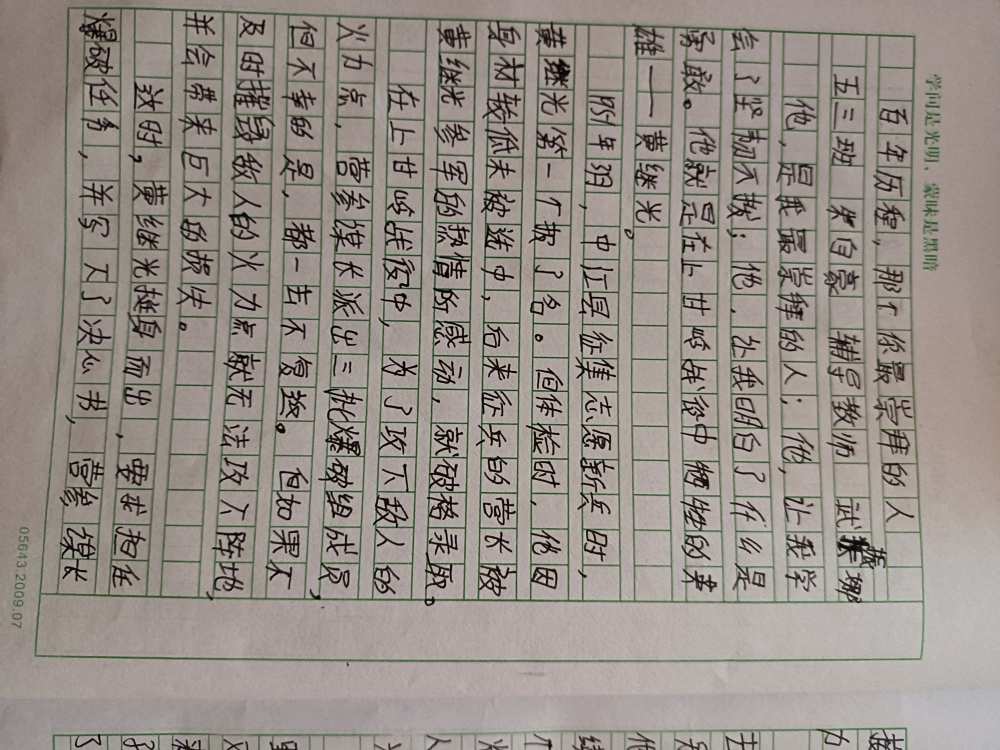 学问是光明，蒙昧是黑暗
百年历程，那个你最崇拜的人
五三班 朱自豪 辅导教师 武 娜
他，是我最崇拜的人；他，让我学
会了坚韧不拔；他，让我明白了什么是
勇敢。他就是在上甘岭战役中牺牲的英
雄——黄继光。
年 ，中江县征集志愿新兵时，
黄继光第一个报了名。但体检时，他因
身材较低未被选中，后来征兵的营长被
黄继光参军的热情所感动，就破格录取。
在上甘岭战役中，为了攻下敌人的
火力点，营参谋长派出三批爆破组成员，
但不幸的是，都一去不复返。但如果不
及时摧毁敌人的火力点就无法攻入阵地，
并会带来巨大的损失。
这时，黄继光挺身而出，要求担任
爆破任务，并写下了决心书，营参谋长
05643.2009.07